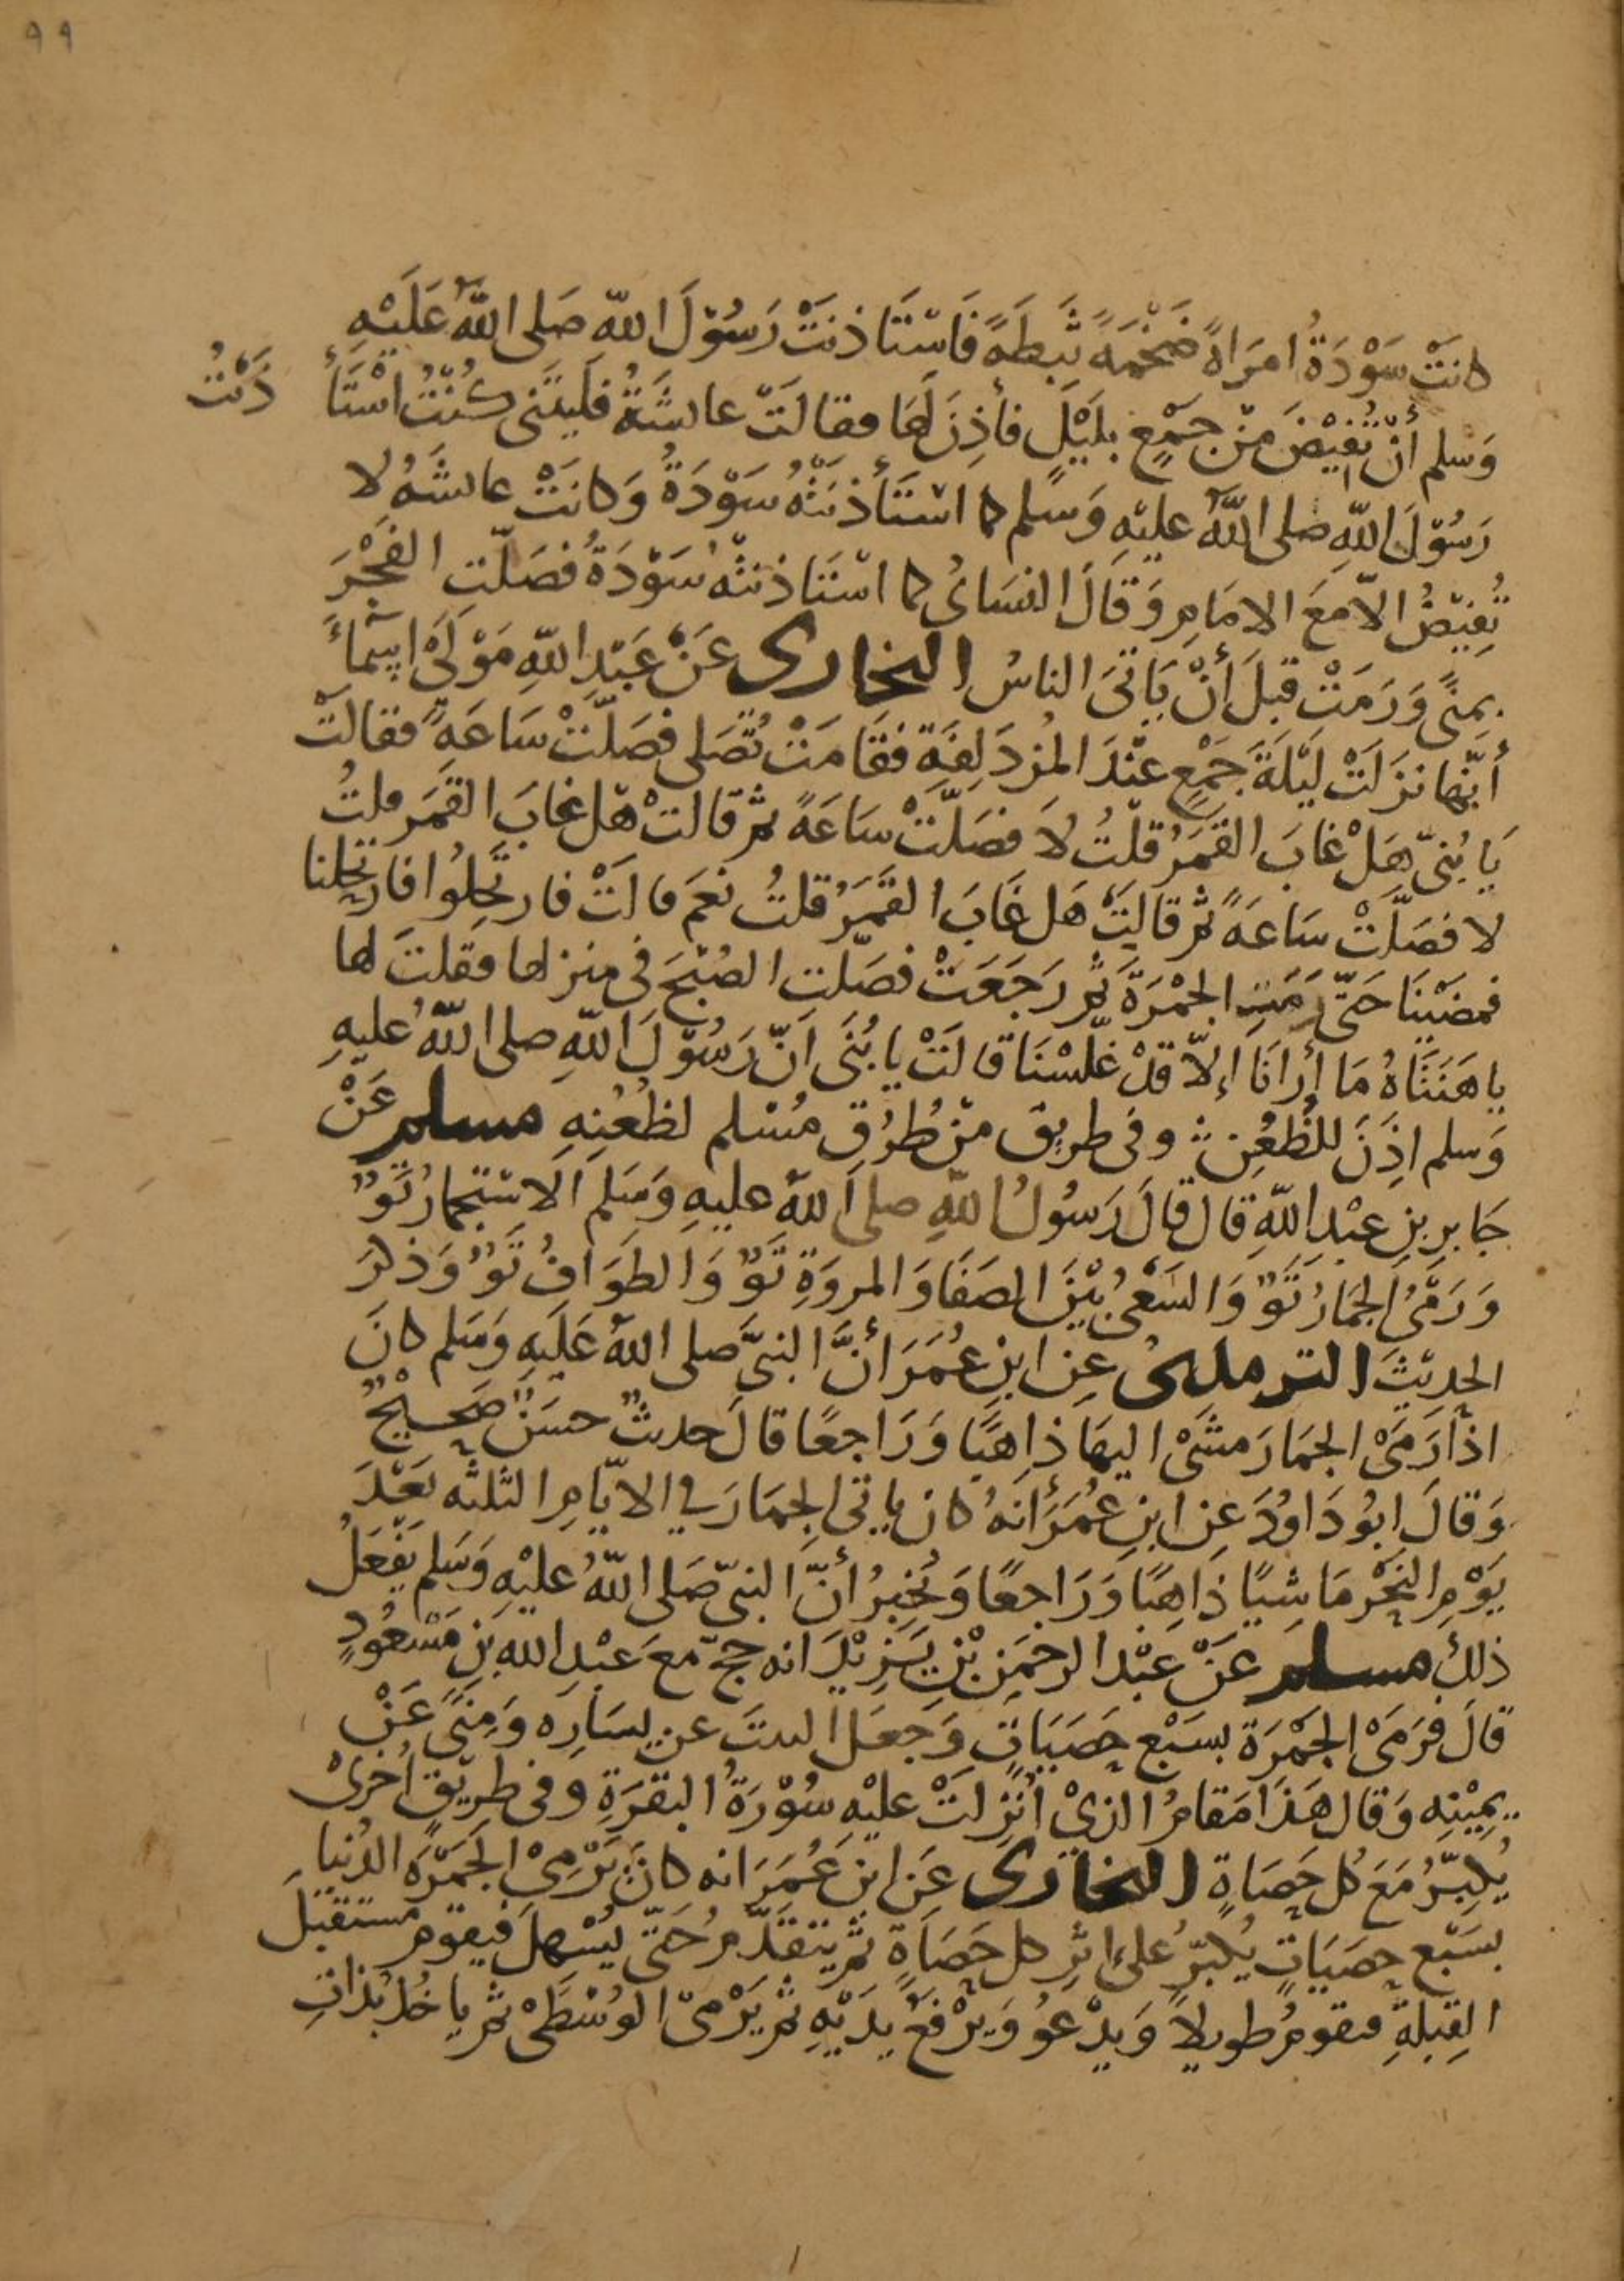 ٩٩
كانَتْ سَوْدَةُ امرَاةً ضَخْمَةً ثَبِطَةً فَاسْتَاذنَتْ رَسُوْلَ اللّه صَلى اللّهُ عَلَيْهِ
وَسلم أَنْ تُفِيْضَ مِنْ جَمْعٍ بِلَيْلٍ فأَذِنَ لَهَا فقالَتْ عائشَةُ فلَيتَنى كُنْتُ اسْتَأ ذَنْتُ
رَسُوْلَ اللّهِ صلى اللّهُ عليْهِ وَسَلم كما اسْتَأذنَتْهُ سَوْدَةُ وَكانَتْ عائشَةُ لا
تُفِيْضُ الاّ مَعَ الامَامِ وَقَالَ النسَائُ كما اسْتَاذنتْهُ سَوْدَةُ فصَلّتِ الفَجْرَ
بِمنًى وَرَمَتْ قبلَ أَنْ يَاتىَ الناسُ البخارى عَنْ عَبْدِ اللّهِ مَوْلَى اسْمَاءَ
أنّها نزَلَتْ لَيْلَةَ جَمْعٍ عنْدَ المُزدَلِفَةِ فقَامَتْ تُصَلى فصَلّتْ سَاعَةً فقالَتْ
يَا بُنىّ هَلْ غابَ القمَرُ قلتُ لاَ فصَلّتْ سَاعَةً ثم قالتْ هَل غابَ القمَر قلتُ
لا فصَلّتْ سَاعَةً ثم قالَتْ هَل غَابَ القَمَرُ قلتُ نعَم قالَتْ فارتحِلُوا فارتحَلنا
فمضَيْنَا حَتّى رَمَتِ الجمْرَةَ ثم رَجَعَتْ فصَلّتِ الصُبْحَ فى منزلها فقلتُ لها
يا هَنَتَاهُ مَا أُرَانَا إلاّ قدْ غلّسْنَا قالَتْ يا بُنَى انّ رَسُوْلَ اللّهِ صلى اللّهُ عليهِ
وَسلم اذِنَ للظُعُنِ وفى طريق منْ طُرُقِ مُسْلم لظُعُنِهِ مسلم عَنْ
جَابرِ بنِ عبْدِ اللّهِ قال قالَ رَسُولُ اللّهِ صلى اللّهُ عليهِ وَسَلم الاسْتجمارُ تَوٌّ
وَرَمْىُ الجمَارِ تَوٌّ وَالسَعْىُ بيْنَ الصَفَا وَالمروَةِ تَوٌّ وَالطوَافُ تَوٌّ وَذكرَ
الحديْثَ الترمذى عَنِ ابنِ عُمَرَ أَنَّ النبىَّ صلى اللّهُ عَلَيهِ وَسَلم كانَ
اذا رَمَىْ الجمَارَ مشَىْ اليهَا ذاهِبًا وَرَاجعًا قالَ حديثٌ حسَنٌ صَحيْحٌ
وَقالَ ابُو دَاوُدَ عَنِ ابنِ عُمَرَ أنهُ كان ياتى الجمَارَ في الايّامِ الثلثه بعْدَ
يَوْمِ النحْرِ مَاشيًا ذَاهِبًا وَرَاجعًا وَيُخبرُ أنّ النبىّ صَلى اللّهُ عليْهِ وَسَلم يَفْعَلُ
ذلكَ مسلم عَنْ عبْد الرحمَنِ بْنِ يَزِيْدَ انه حجّ معَ عبْدِ اللّهِ بنِ مَسْعُودٍ
قالَ فرَمَىْ الجمْرَةَ بسَبْعِ حصَيَاتٍ وَجعَلَ البيتَ عن يسَارِه وَمِنًى عَنْ
يمِيْنِه وَقال هَذَا مَقامُ الذىْ أُنزِلَتْ عليْهِ سُوْرَةُ البقرَةِ وفى طرِيْقٍ أُخرىْ
يُكبِّرُ مَعَ كُل حَصَاةٍ البخارى عَنِ ابنِ عُمَرَ انه كانَ يَرْمِىْ الجَمْرَةَ الدُنيا
بسَبْعِ حصَيَاتٍ يُكبّرُ على اثرِ كل حَصَاةٍ ثم يتقدَّمُ حَتّى يُسْهِلَ فيقوْم مستقبلَ
القِبْلةِ فيقومُ طويلاً وَيدْعُو وَيَرْفعُ يدَيْهِ ثم يَرْمىْ الوُسْطَىْ ثم ياخُذ بذَاتِ